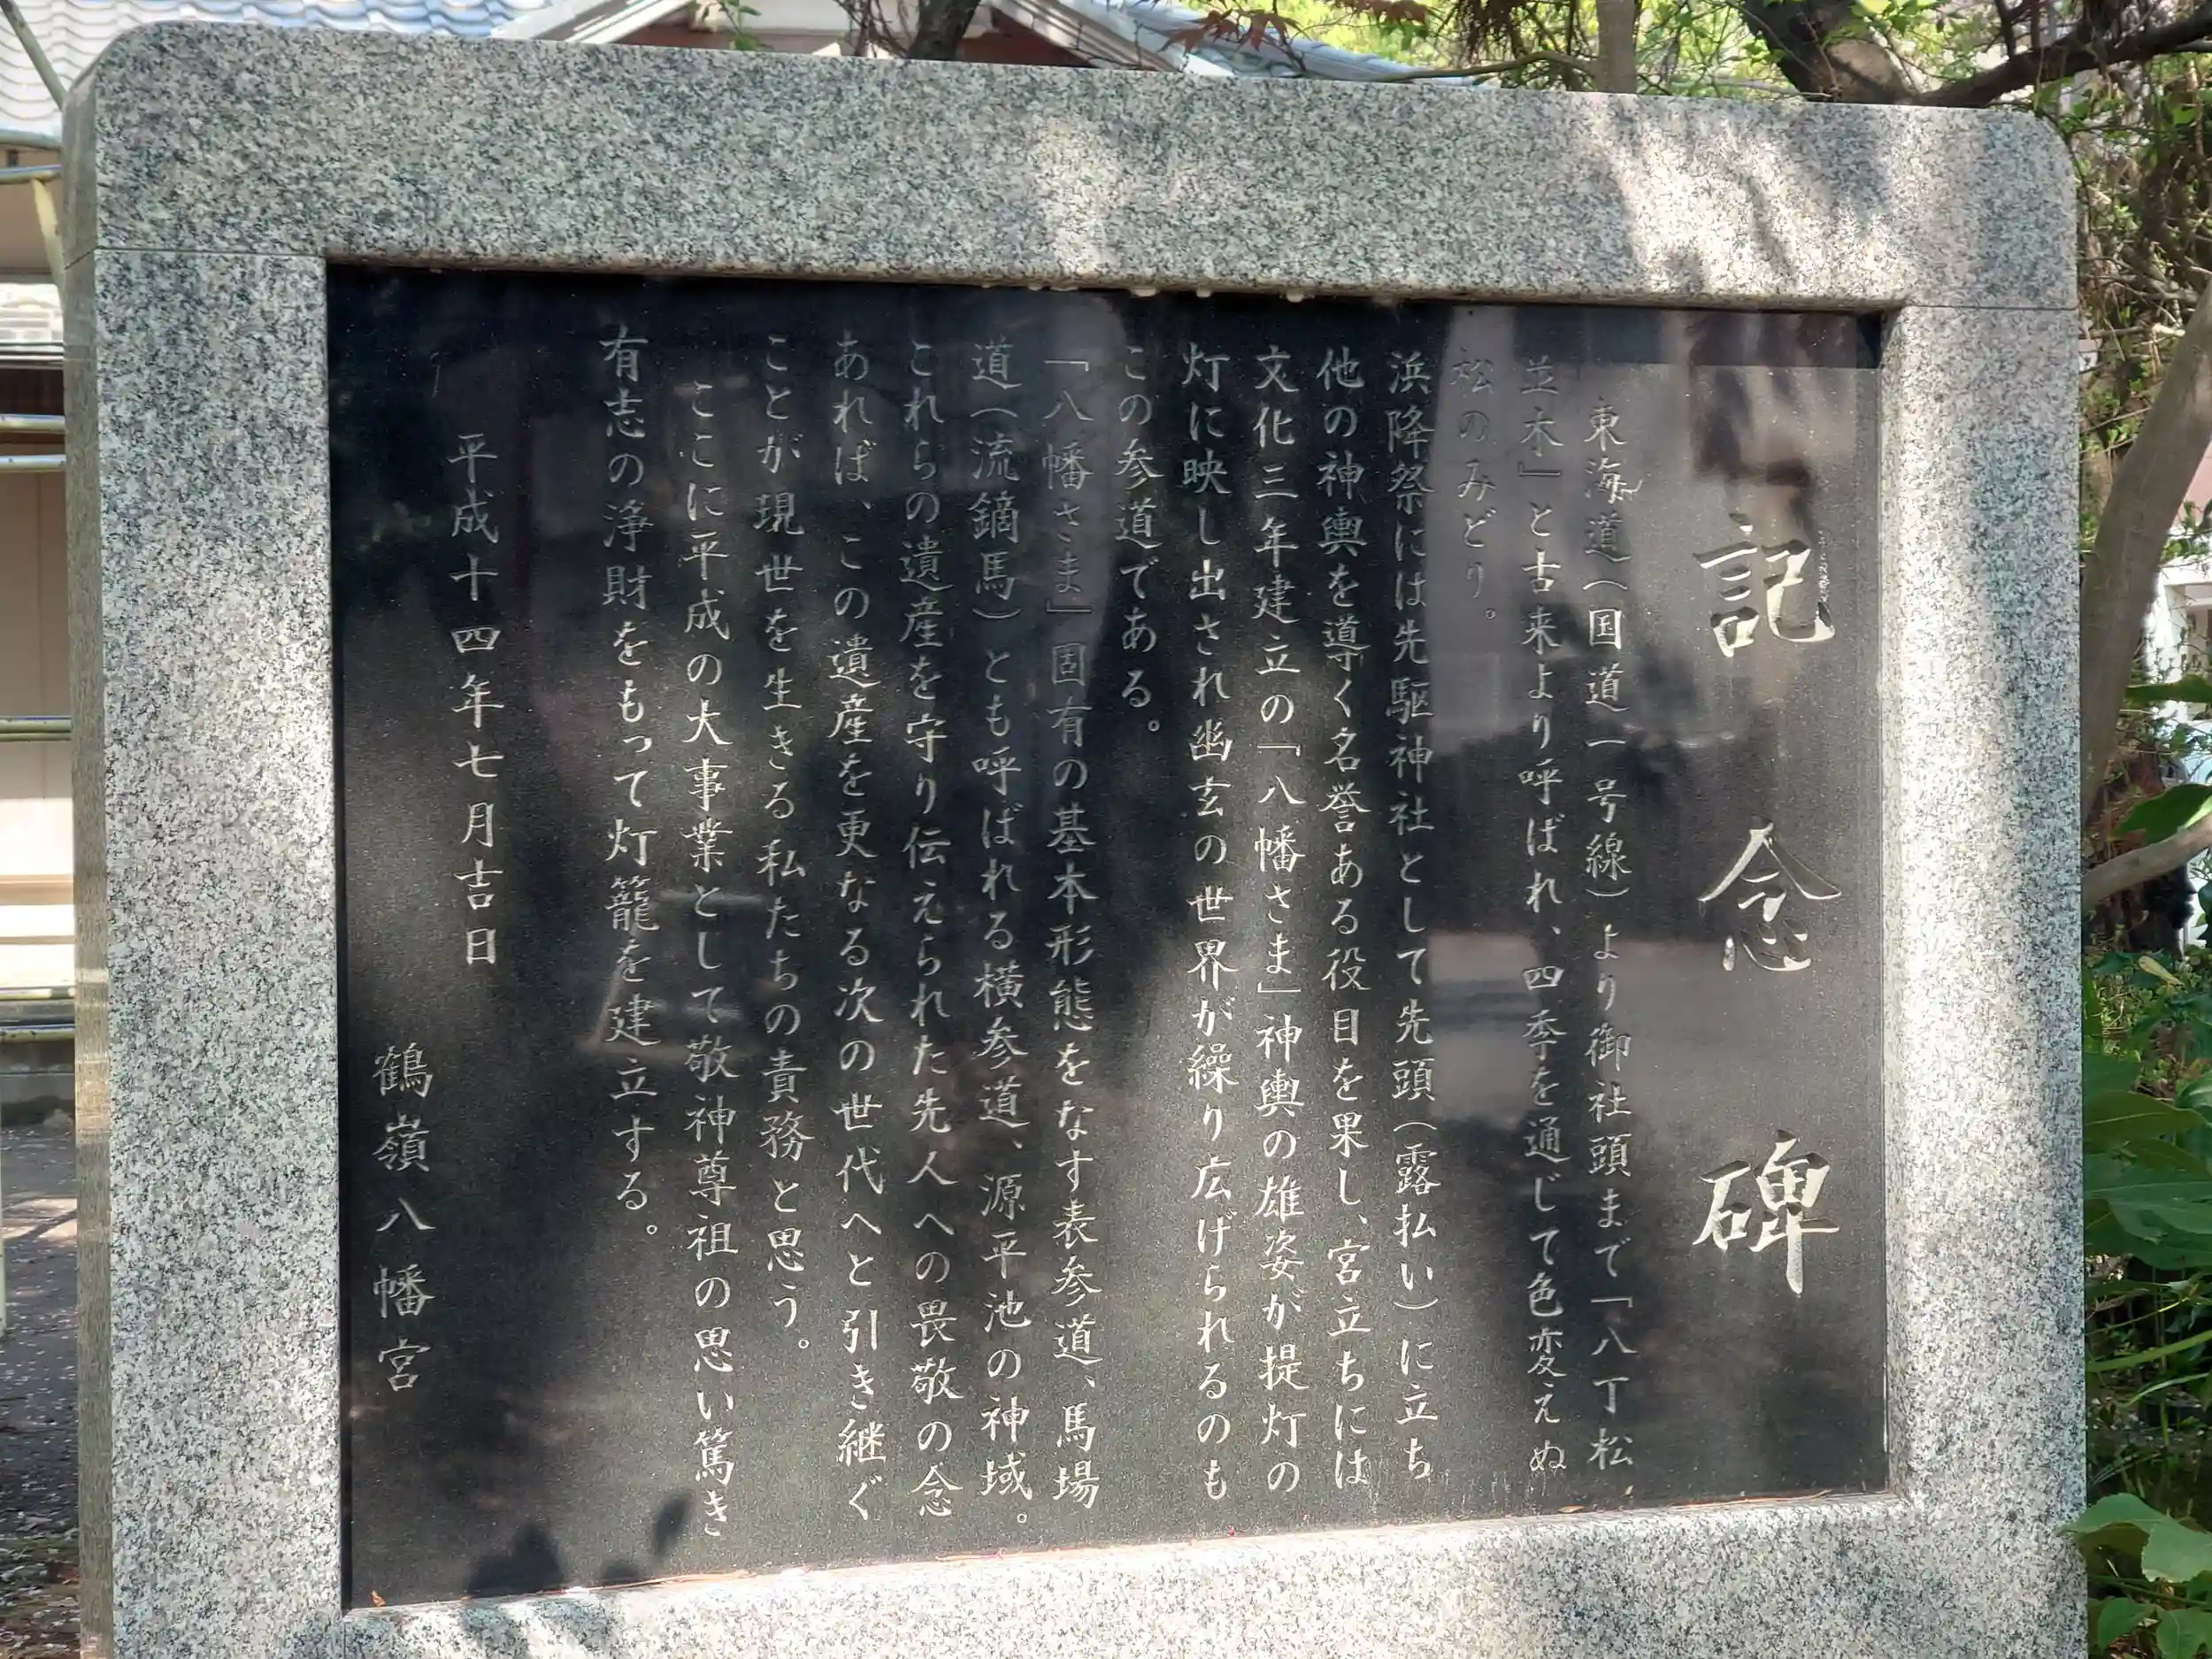 記念碑
東海道（国道一号線）より御社頭まで「八丁松
並木』と古来より呼ばれ、四季を通じて色変えぬ
松のみどり。
浜降祭には先駆神社として先頭（露払い）に立ち
他の神輿を導く名誉ある役目を果し、宮立ちには
文化三年建立の「八幡さま」神輿の雄姿が提灯の
灯に映し出され幽玄の世界が繰り広げられるのも
この参道である。
「八幡さま」固有の基本形態をなす表参道、馬場
道（流鏑馬）とも呼ばれる横参道、源平池の神域。
これらの遺産を守り伝えられた先人への畏敬の念
あれば、この遺産を更なる次の世代へと引き継ぐ
ことが現世を生きる私たちの責務と思う。
ここに平成の大事業として敬神尊祖の思い篤き
有志の浄財をもって灯籠を建立する。
平成十四年七月吉日
鶴嶺八幡宮